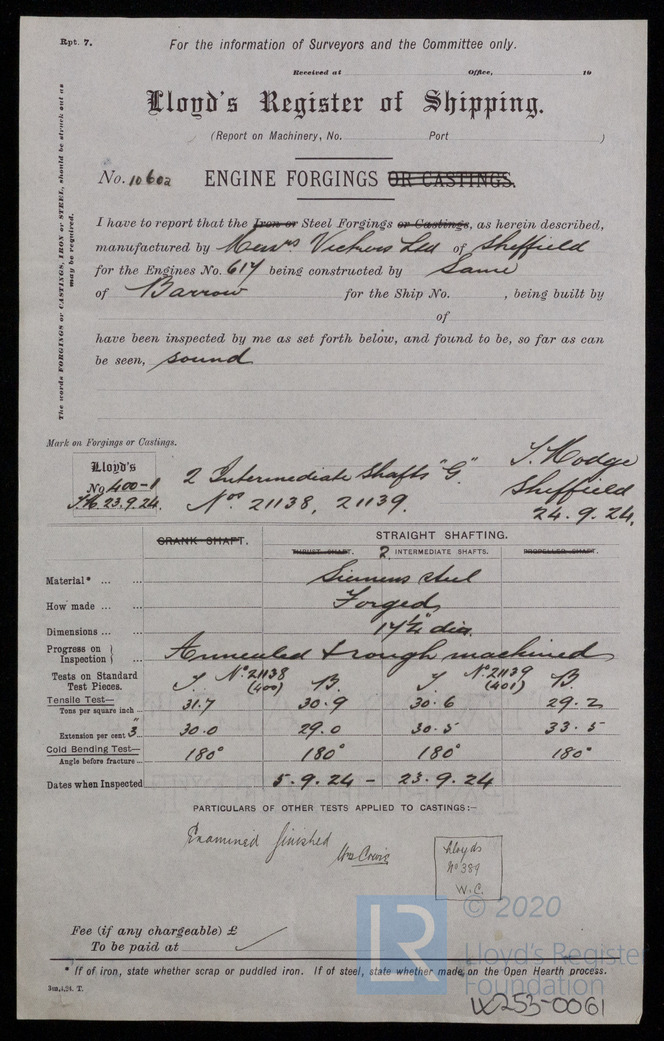 Rpt. 7.
For the information of Surveyors and the Committee only.
Received at Office, 19
Lloyd's Register of Shipping.
(Report on Machinery, No. Port )
The words FORGINGS or CASTINGS, IRON or STEEL, should be struck out as may be required.
No. 10602 ENGINE FORGINGS OR CASTINGS.
I have to report that the Iron or Steel Forgings or Castings, as herein described,
manufactured by Messrs Vickers Ltd of Sheffield
for the Engines No. 617 being constructed by Same
of Barrow for the Ship No. , being built by
of
have been inspected by me as set forth below, and found to be, so far as can
be seen, sound
Mark on Forgings or Castings.
Lloyd's
No 400-1
J.H. 23.9.24.
2 Intermediate Shafts "G"
Nos 21138, 21139.
J. Hodge
Sheffield
24.9.24.
CRANK SHAFT. STRAIGHT SHAFTING.
THRUST SHAFT. 2 INTERMEDIATE SHAFTS. PROPELLER SHAFT.
Material* ... ... Siemens steel
How made ... ... Forged
Dimensions ... ... 17¼" dia.
Progress on Inspection } ... Annealed & rough machined
Tests on Standard Test Pieces. T No 21138 (400) B. T No 21139 (401) B.
Tensile Test— Tons per square inch ... 31.7 30.9 30.6 29.2
Extension per cent 3" ... 30.0 29.0 30.5 33.5
Cold Bending Test— Angle before fracture ... 180° 180° 180° 180°
Dates when Inspected 5.9.24 - 23.9.24
PARTICULARS OF OTHER TESTS APPLIED TO CASTINGS:—
Examined finished
Lloyds
No 389
W.C.
Fee (if any chargeable) £
To be paid at
* If of iron, state whether scrap or puddled iron. If of steel, state whether made on the Open Hearth process.
3m,4,24. T.
© 2020
LR
Lloyd's Register
Foundation
W253-0061